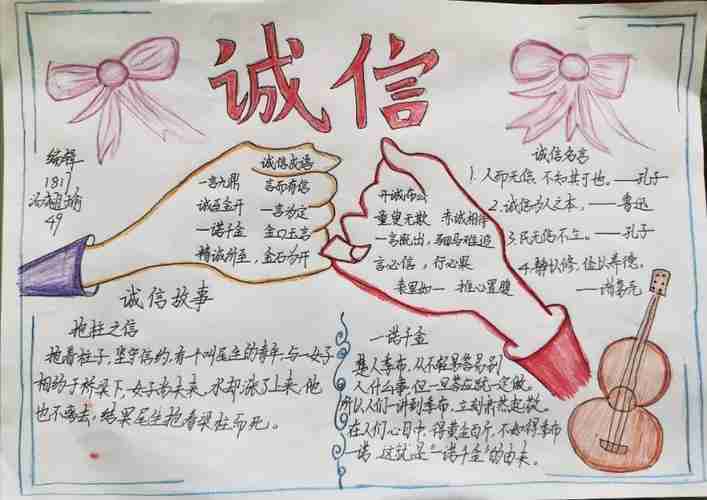 诚信
编辑
1817
49
诚信成语
一言九鼎 言而有信
诚至金开 一言为定
一诺千金 金口玉言
精诚所至，金石为开
开诚布公
童叟无欺 赤诚相待
一言既出，驷马难追
言必信，行必果
表里如一 推心置腹
诚信名言
1.人而无信，不知其可也。——孔子
2.诚信为人之本，——鲁迅
3.民无信不立。——孔子
4.静以修，俭以养德。
——诸葛亮
诚信故事
抱柱之信
抱着柱子，坚守信约，有个叫尾生的青年，与一女子
相约于桥梁下，女子尚未来，水却涨了上来，他
也不离去，结果尾生抱着梁柱而死。
一诺千金
楚人季布，从不轻易答应别
人什么事，但一旦答应就一定做。
所以人们一讲到季布，立刻肃然起敬。
在人们心目中，得黄金百斤，不如得季布
一诺，这就是“一诺千金”的由来。